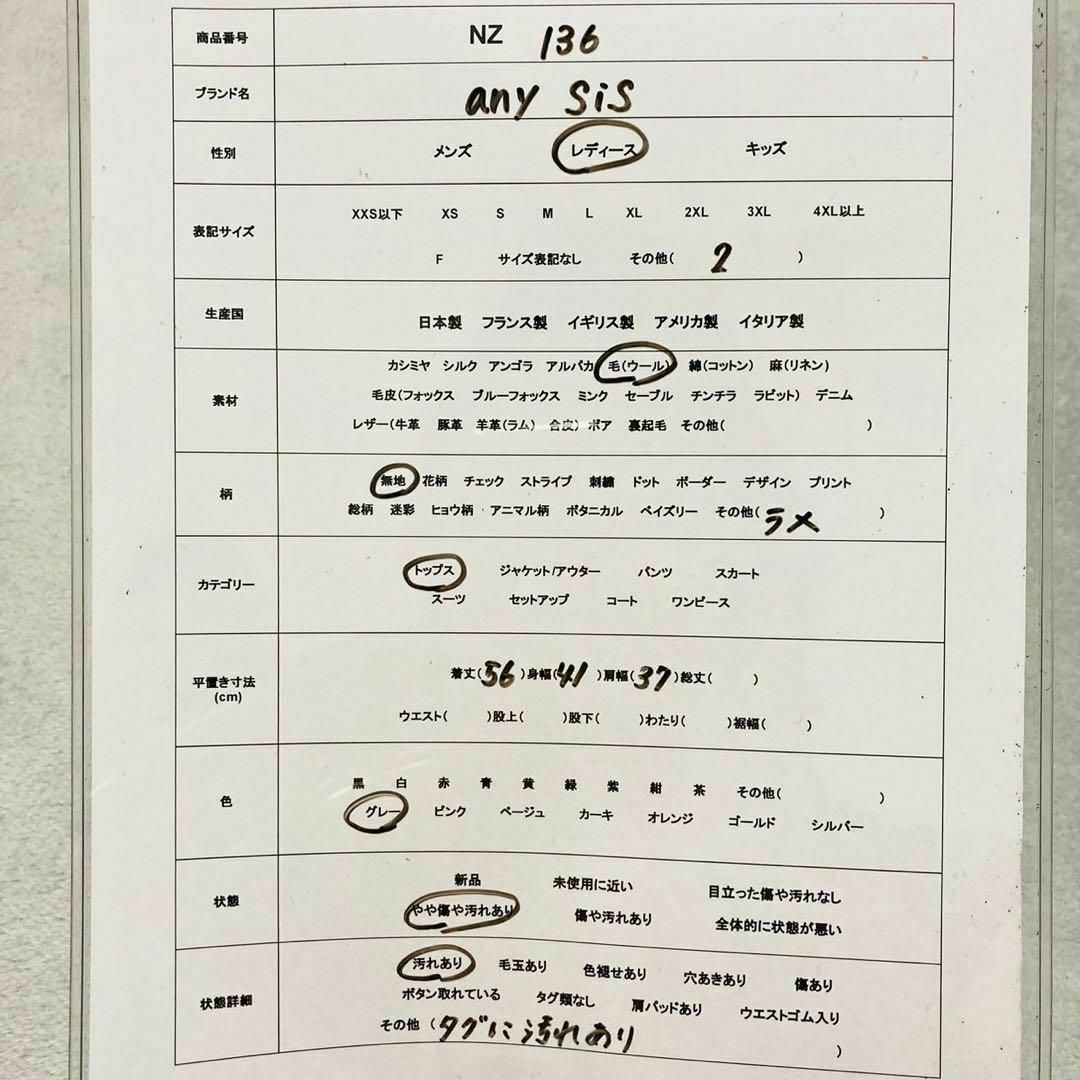 商品番号 NZ 136
ブランド名 any SiS
性別 メンズ レディース キッズ
表記サイズ
XXS以下 XS S M L XL 2XL 3XL 4XL以上
F サイズ表記なし その他( 2 )
生産国 日本製 フランス製 イギリス製 アメリカ製 イタリア製
素材
カシミヤ シルク アンゴラ アルパカ 毛(ウール) 綿(コットン) 麻(リネン)
毛皮(フォックス ブルーフォックス ミンク セーブル チンチラ ラビット) デニム
レザー(牛革 豚革 羊革(ラム) 合皮) ボア 裏起毛 その他( )
柄
無地 花柄 チェック ストライプ 刺繍 ドット ボーダー デザイン プリント
総柄 迷彩 ヒョウ柄 アニマル柄 ボタニカル ペイズリー その他( ラメ )
カテゴリー
トップス ジャケット/アウター パンツ スカート
スーツ セットアップ コート ワンピース
平置き寸法
(cm)
着丈( 56 )身幅( 41 )肩幅( 37 )総丈( )
ウエスト( )股上( )股下( )わたり( )裾幅( )
色
黒 白 赤 青 黄 緑 紫 紺 茶 その他( )
グレー ピンク ベージュ カーキ オレンジ ゴールド シルバー
状態
新品 未使用に近い 目立った傷や汚れなし
やや傷や汚れあり 傷や汚れあり 全体的に状態が悪い
状態詳細
汚れあり 毛玉あり 色褪せあり 穴あきあり 傷あり
ボタン取れている タグ類なし 肩パッドあり ウエストゴム入り
その他 ( タグに汚れあり )